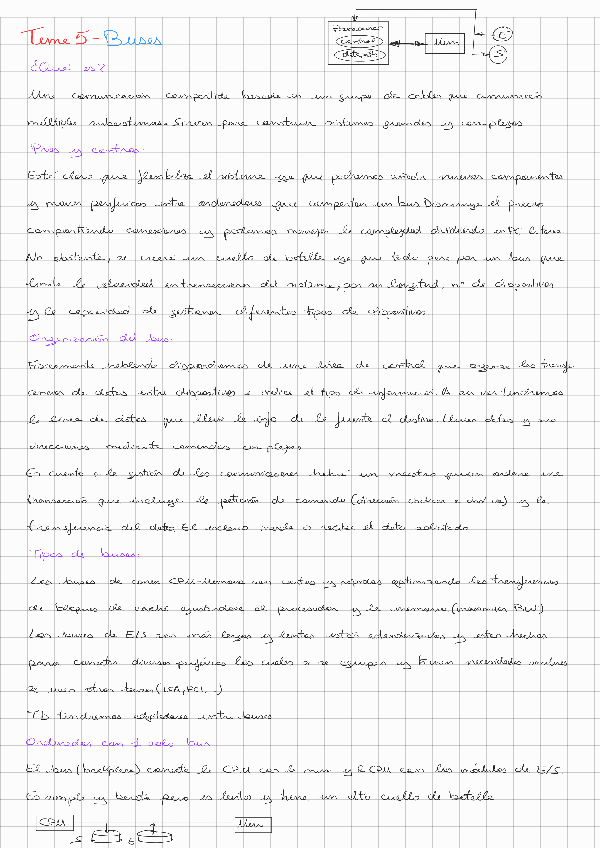 Tema 5 - Buses
Procesador
control
datapath
Mem
E
S
¿Qué es?
Una comunicación compartida basada en un grupo de cables que comunican
múltiples subsistemas. Sirven para construir sistemas grandes y complejos
Pros y contras.
Está claro que flexibiliza el sistema ya que podremos añadir nuevos componentes
y mover periféricos entre ordenadores que comparten un bus. Disminuye el precio
compartiendo conexiones y podemos manejar la complejidad dividiendo en
No obstante, se crea un cuello de botella ya que todo pasa por un bus que
limita la velocidad en transacciones del sistema, por su longitud, nº de dispositivos
y la capacidad de gestionar diferentes tipos de dispositivos.
Organización del bus.
Físicamente hablando dispondremos de una línea de control que organiza las transfe
rencias de datos entre dispositivos e indica el tipo de información. A su vez tendremos
la línea de datos que lleva la info de la fuente al destino. Llevan datos y
direcciones mediante comandos complejos
En cuanto a la gestión de las comunicaciones habrá un maestro quien ordena una
transacción que incluye la petición de comando (dirección ) y la
transferencia del dato. El esclavo manda o recibe el dato solicitado
Tipos de buses.
Los buses de conex CPU-Memoria son cortos y rápidos optimizando las transferencias
de bloques de caché ajustándose al procesador y la memoria (maximizar BW)
Los buses de E/S son más largos y lentos están estandarizados y están hechos
para conectar diversos periféricos los cuales si se agrupan y tienen necesidades similares
se usan otros buses (ISA, PCI...)
Tb tendremos adaptadores entre buses
Ordenador con 1 solo bus
El bus (backplane) conecta la CPU con la mem y la CPU con los módulos de E/S.
Es simple y barato pero es lento y tiene un alto cuello de botella
CPU
Mem